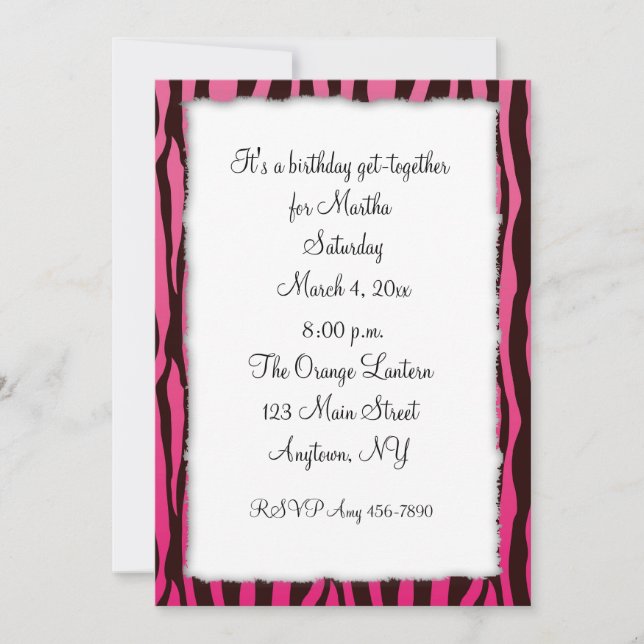 It's a birthday get-together
for Martha
Saturday
March 4, 20xx
8:00 p.m.
The Orange Lantern
123 Main Street
Anytown, NY
RSVP Amy 456-7890